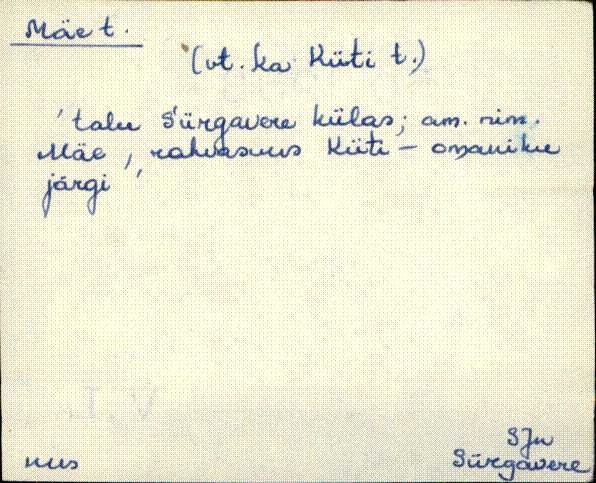 Mäe t.
(vt. ka Küti t.)
'talu Sürgavere külas; am. nim.
Mäe, rahvasuus Küti – omaniku
järgi'
SJn
nus Sürgavere